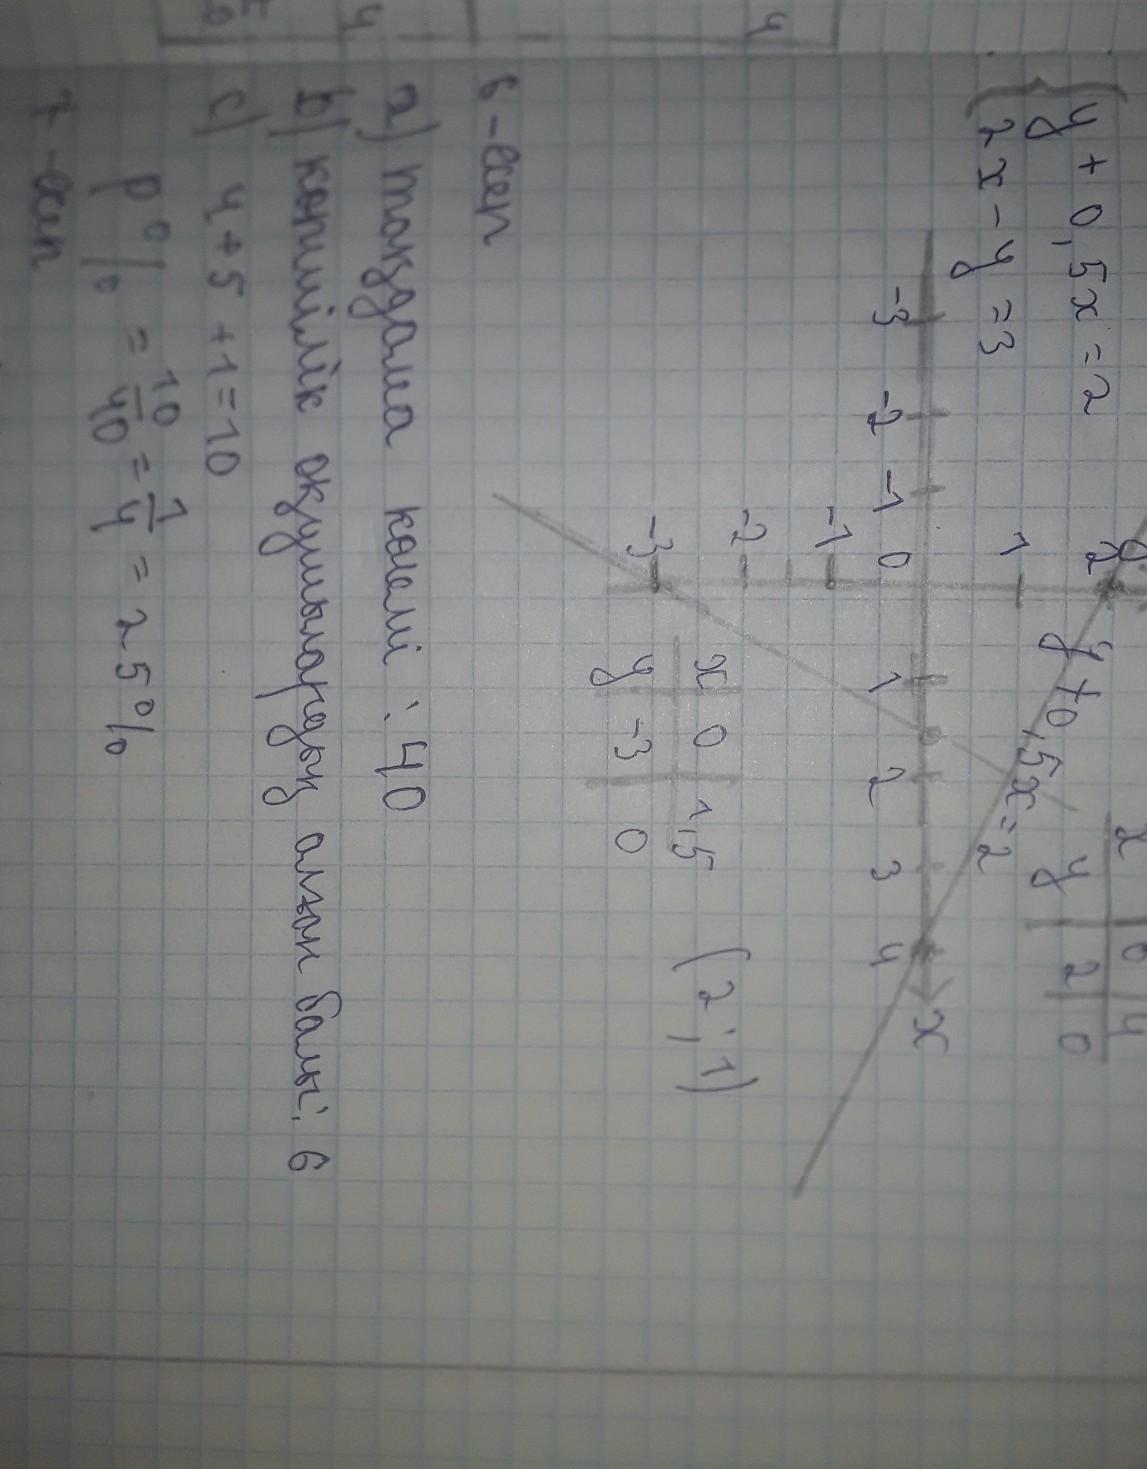 y + 0,5x = 2
2x - y = 3
y
2
1
0
-1
-2
-3
-3 -2 -1 1 2 3 4 x
y + 0,5x = 2
x 0 4
y 2 0
x 0 1,5
y -3 0
(2; 1)
6-есеп
a) таңдама көлемі : 40
b) көпшілік оқушылардың алған балы: 6
c) 4 + 5 + 1 = 10
p% = 10/40 = 1/4 = 25%
7-есеп